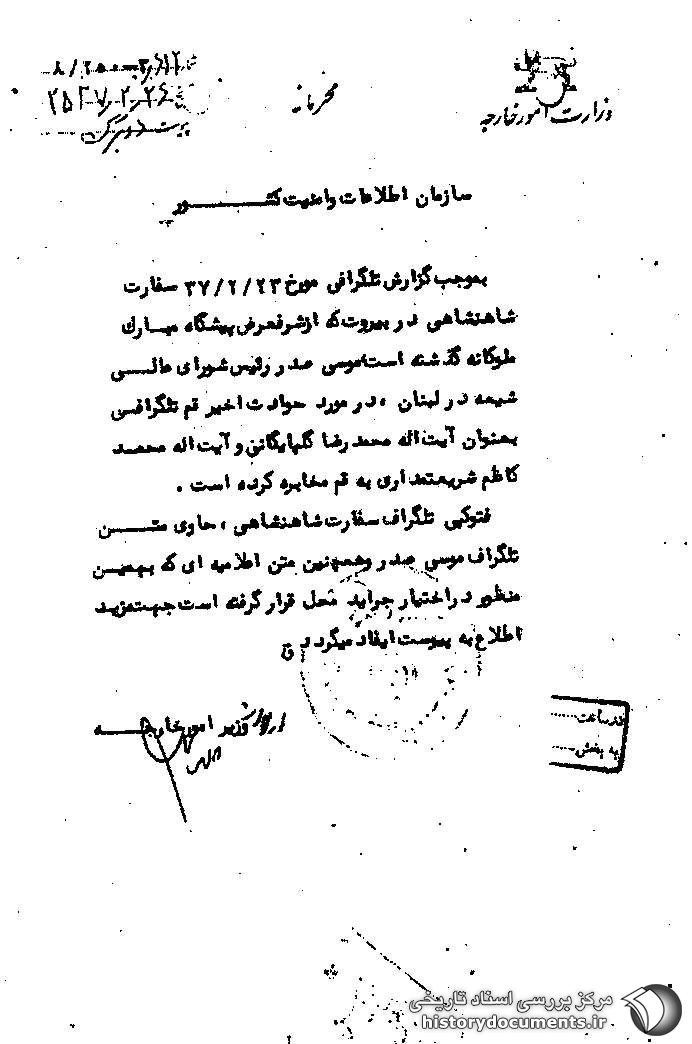 وزارت امور خارجه
محرمانه
۲۵۳۷/۲/۲۴
پیوست دو برگ
سازمان اطلاعات وامنیت کشــــــــور
بموجب گزارش تلگرافی مورخ ۳۷/۲/۲۳ سفارت
شاهنشاهی در بیروت که از شرفعرض پیشگاه مبارک
ملوکانه گذشته است موسی صدر رئیس شورای عالــی
شیعه در لبنان ، در مورد حوادث اخیر قم تلگرافــی
بعنوان آیت اله محمد رضا گلپایگانی و آیت اله محمــد
کاظم شریعتمداری به قم مخابره کرده است .
فتوکپی تلگراف سفارت شاهنشاهی ، حاوی متـــن
تلگراف موسی صدر وهمچنین متن اعلامیه ای که بهمیــن
منظور در اختیار جراید محل قرار گرفته است جهت مزیــد
اطلاع به پیوست ایفاد میگردد ق
از طرف وزیر امور خارجـــه
به بخش.....
مرکز بررسی اسناد تاریخی
historydocuments.ir